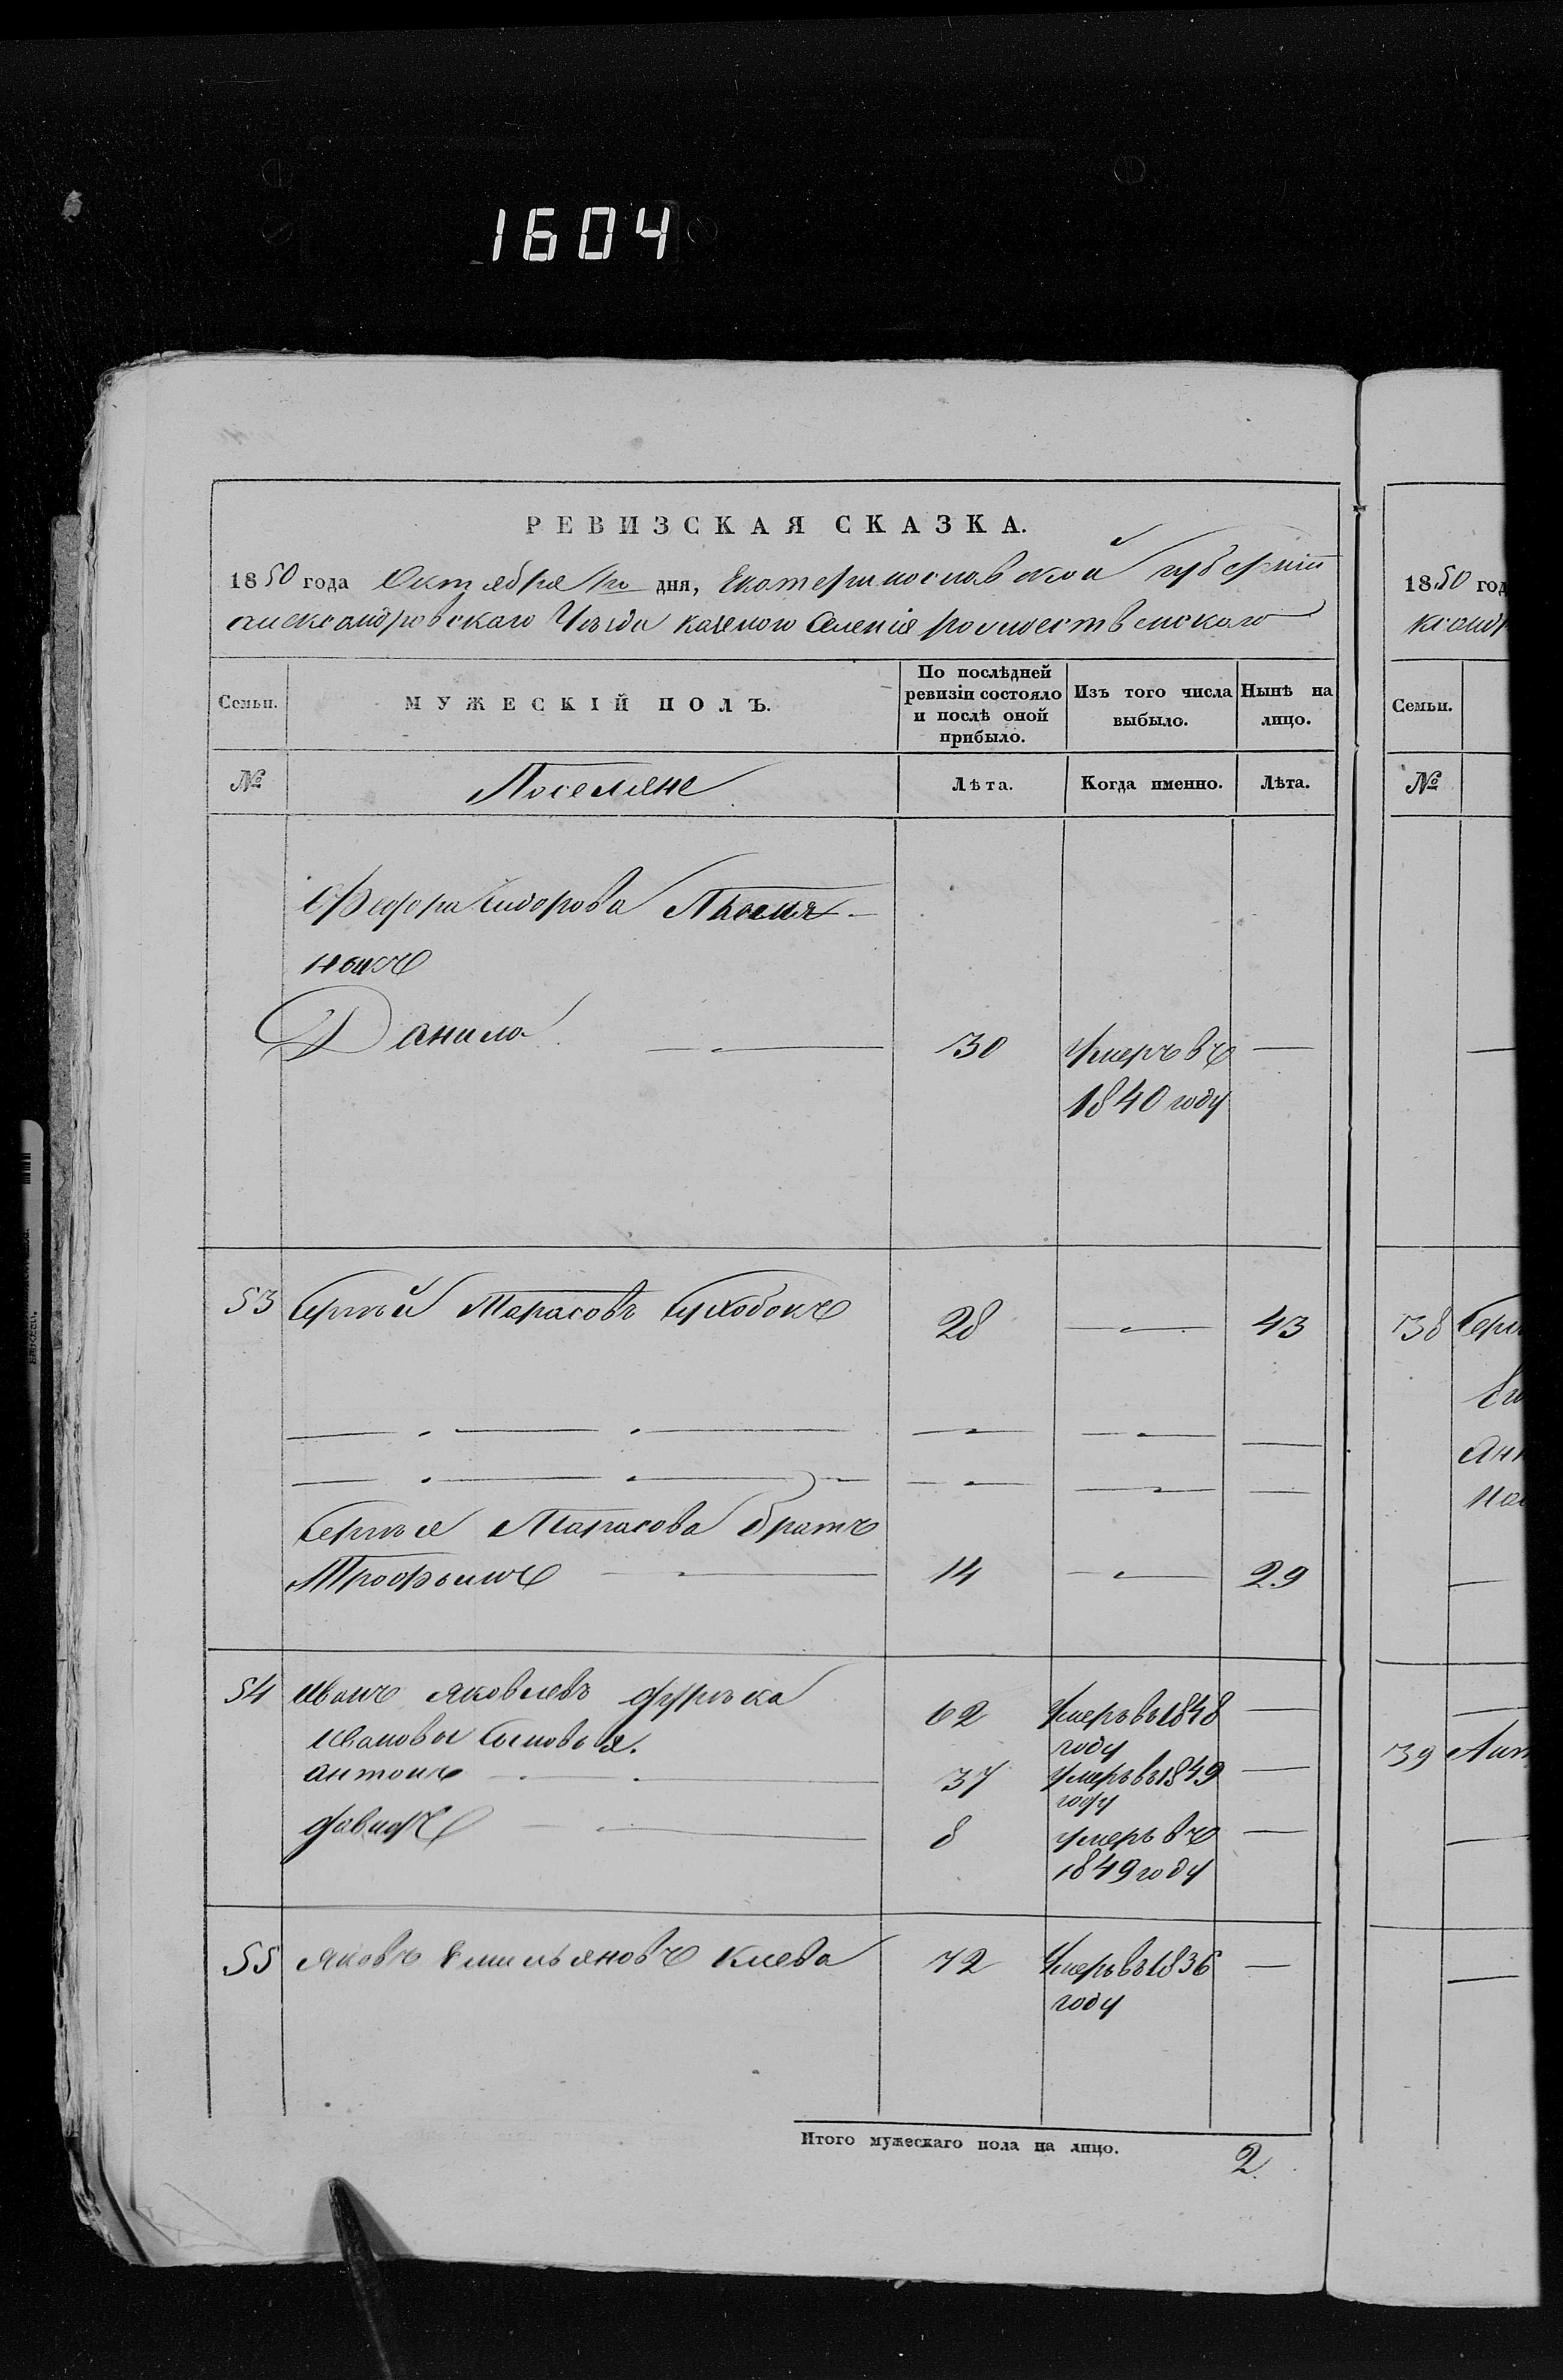 1604
РЕВИЗСКАЯ СКАЗКА.
1850 года Октября дня, Екатеринославской губерніи
Александровскаго Уѣзда казеного Селенія рождественскаго
Семьи.
МУЖЕСКІЙ ПОЛЪ.
По послѣдней ревизіи состояло и послѣ оной прибыло.
Изъ того числа выбыло.
Нынѣ на лицо.
№
Поселяне
Лѣта.
Когда именно.
Лѣта.
Федора Сидорова Племян-
никъ
Данило 30 Умеръ въ —
1840 году
53 Сергѣй Тарасовъ 28 — 43
Сергѣя Тарасова братъ
Трофимъ 14 — 29
54 Иванъ Яковлевъ 62 Умеръ въ 1848 —
году
Ивановы Сыновья.
Антонъ 37 Умеръ въ 1849 —
году
Давидъ 8 Умеръ въ —
1849 году
55 Яковъ Емильяновъ Клева 72 Умеръ въ 1836 —
году
Итого мужескаго пола на лицо. 2
1850 год
Семьи.
№
38 Серг
Анн
39